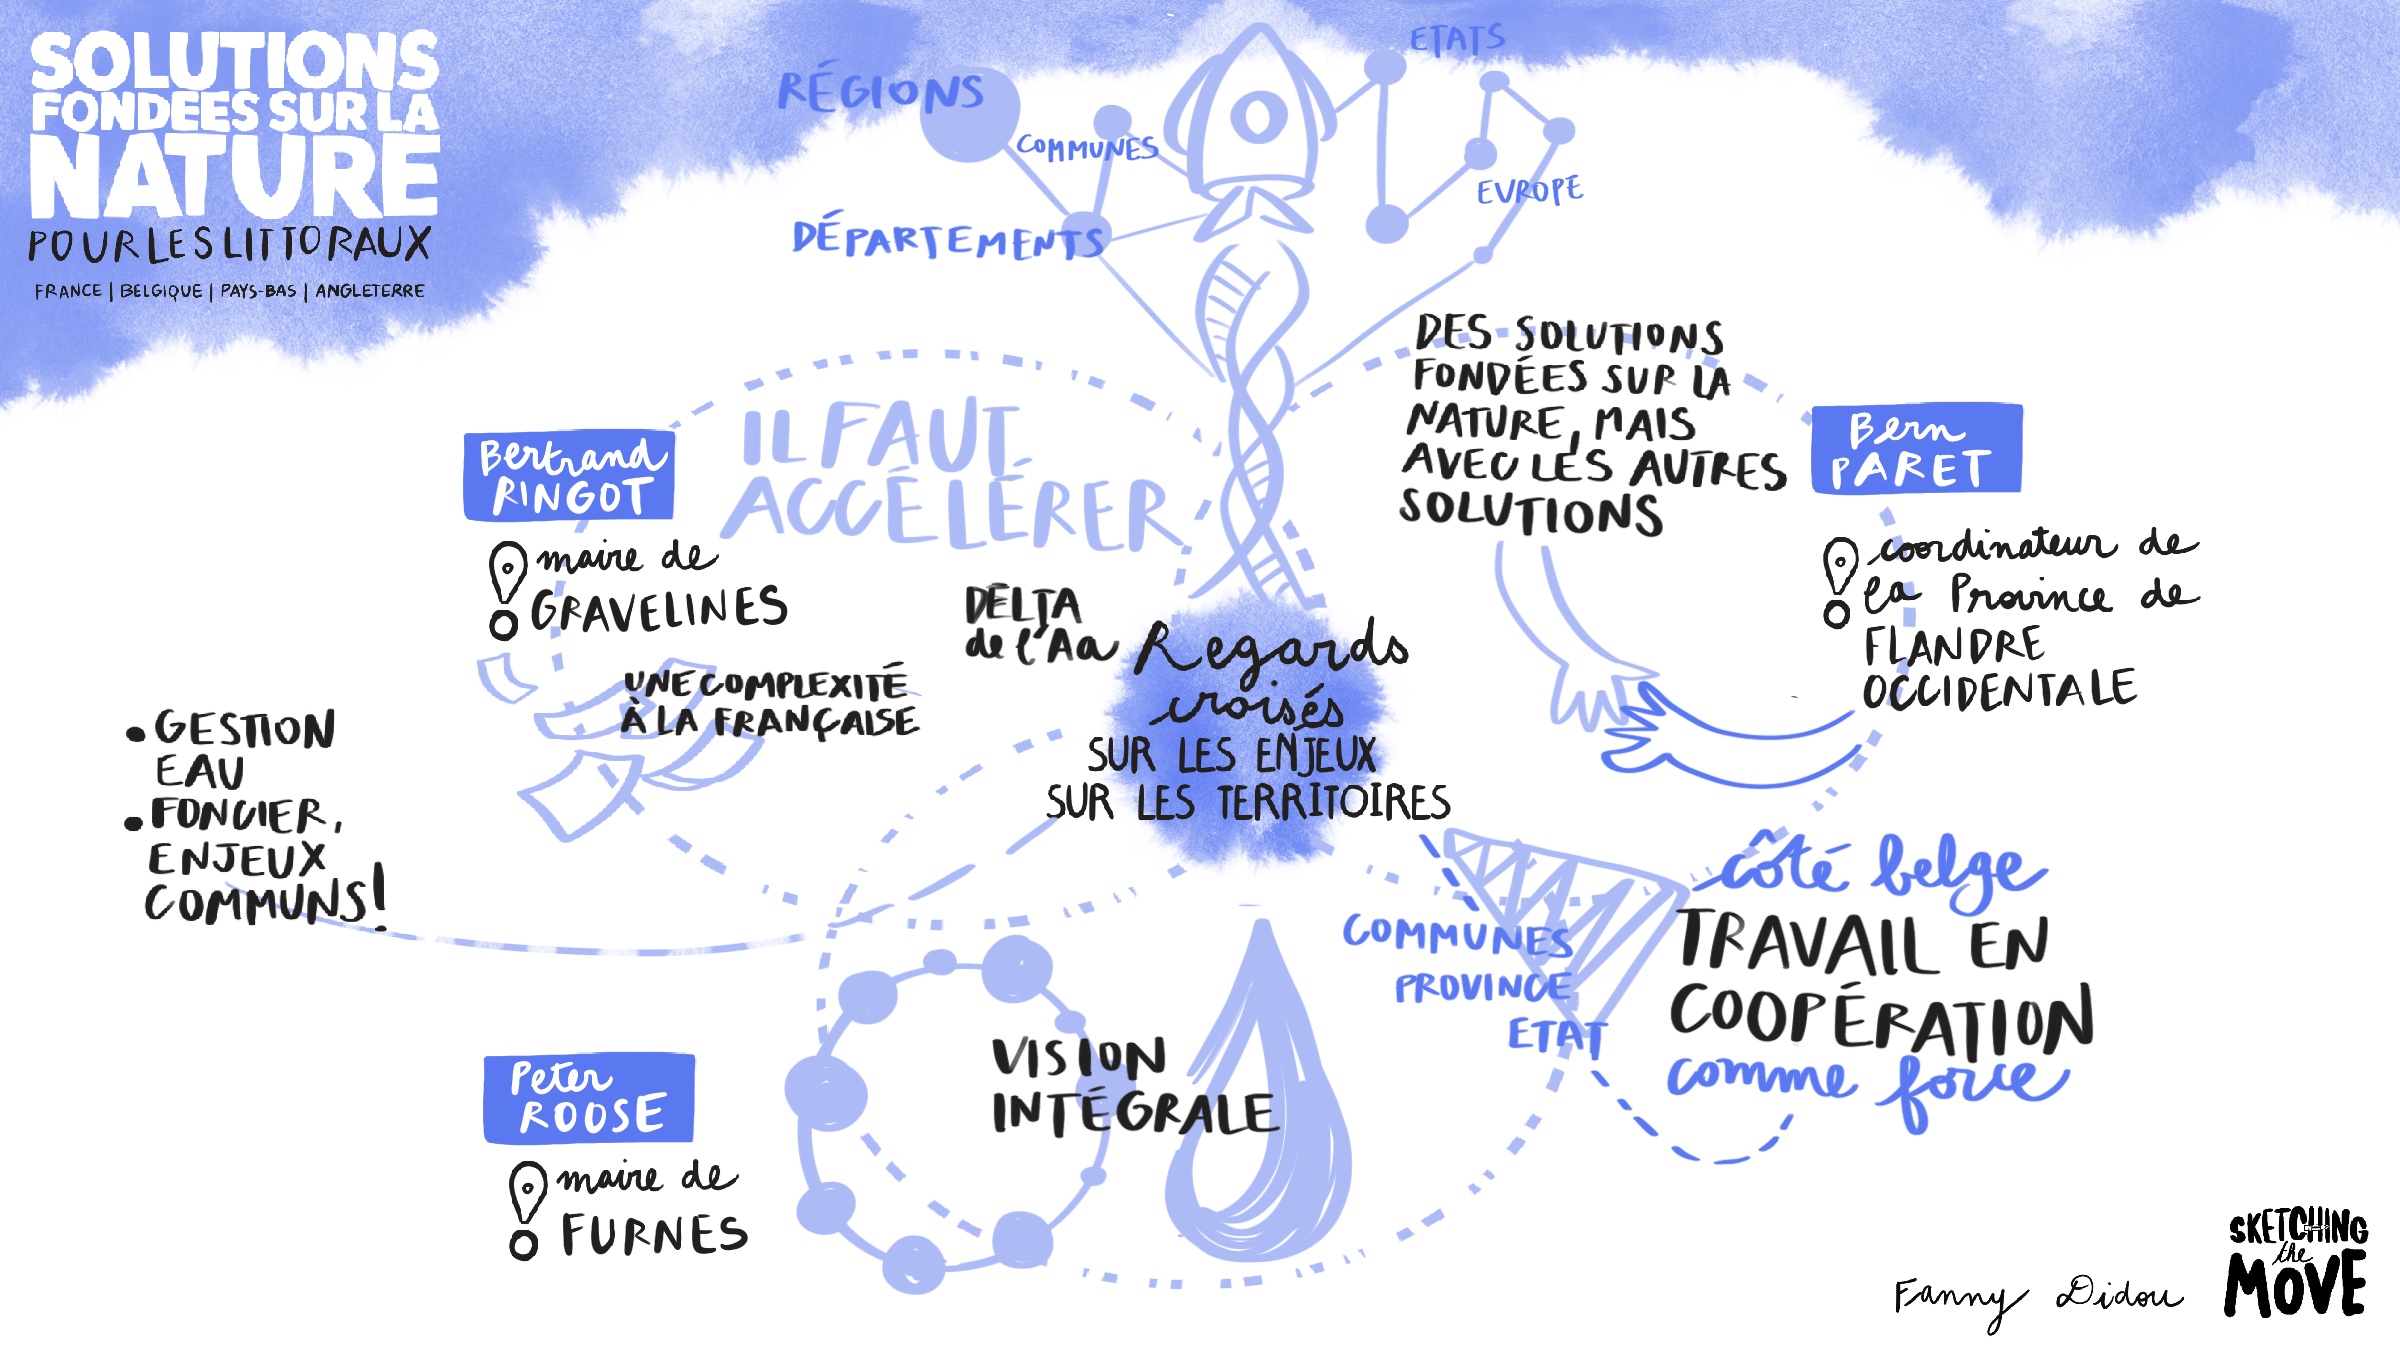 SOLUTIONS
FONDÉES SUR LA
NATURE
POUR LES LITTORAUX
FRANCE | BELGIQUE | PAYS-BAS | ANGLETERRE
RÉGIONS
COMMUNES
DÉPARTEMENTS
ETATS
EUROPE
IL FAUT
ACCÉLÉRER
Bertrand
RINGOT
maire de
GRAVELINES
DELTA
de l'Aa
UNE COMPLEXITÉ
À LA FRANÇAISE
• GESTION
EAU
• FONCIER,
ENJEUX
COMMUNS!
Regards
croisés
SUR LES ENJEUX
SUR LES TERRITOIRES
DES SOLUTIONS
FONDÉES SUR LA
NATURE, MAIS
AVEC LES AUTRES
SOLUTIONS
Bern
PARET
coordinateur de
la Province de
FLANDRE
OCCIDENTALE
COMMUNES
PROVINCE
ETAT
côté belge
TRAVAIL EN
COOPÉRATION
comme force
Peter
ROOSE
maire de
FURNES
VISION
INTÉGRALE
Fanny Didou
SKETCHING
the
MOVE